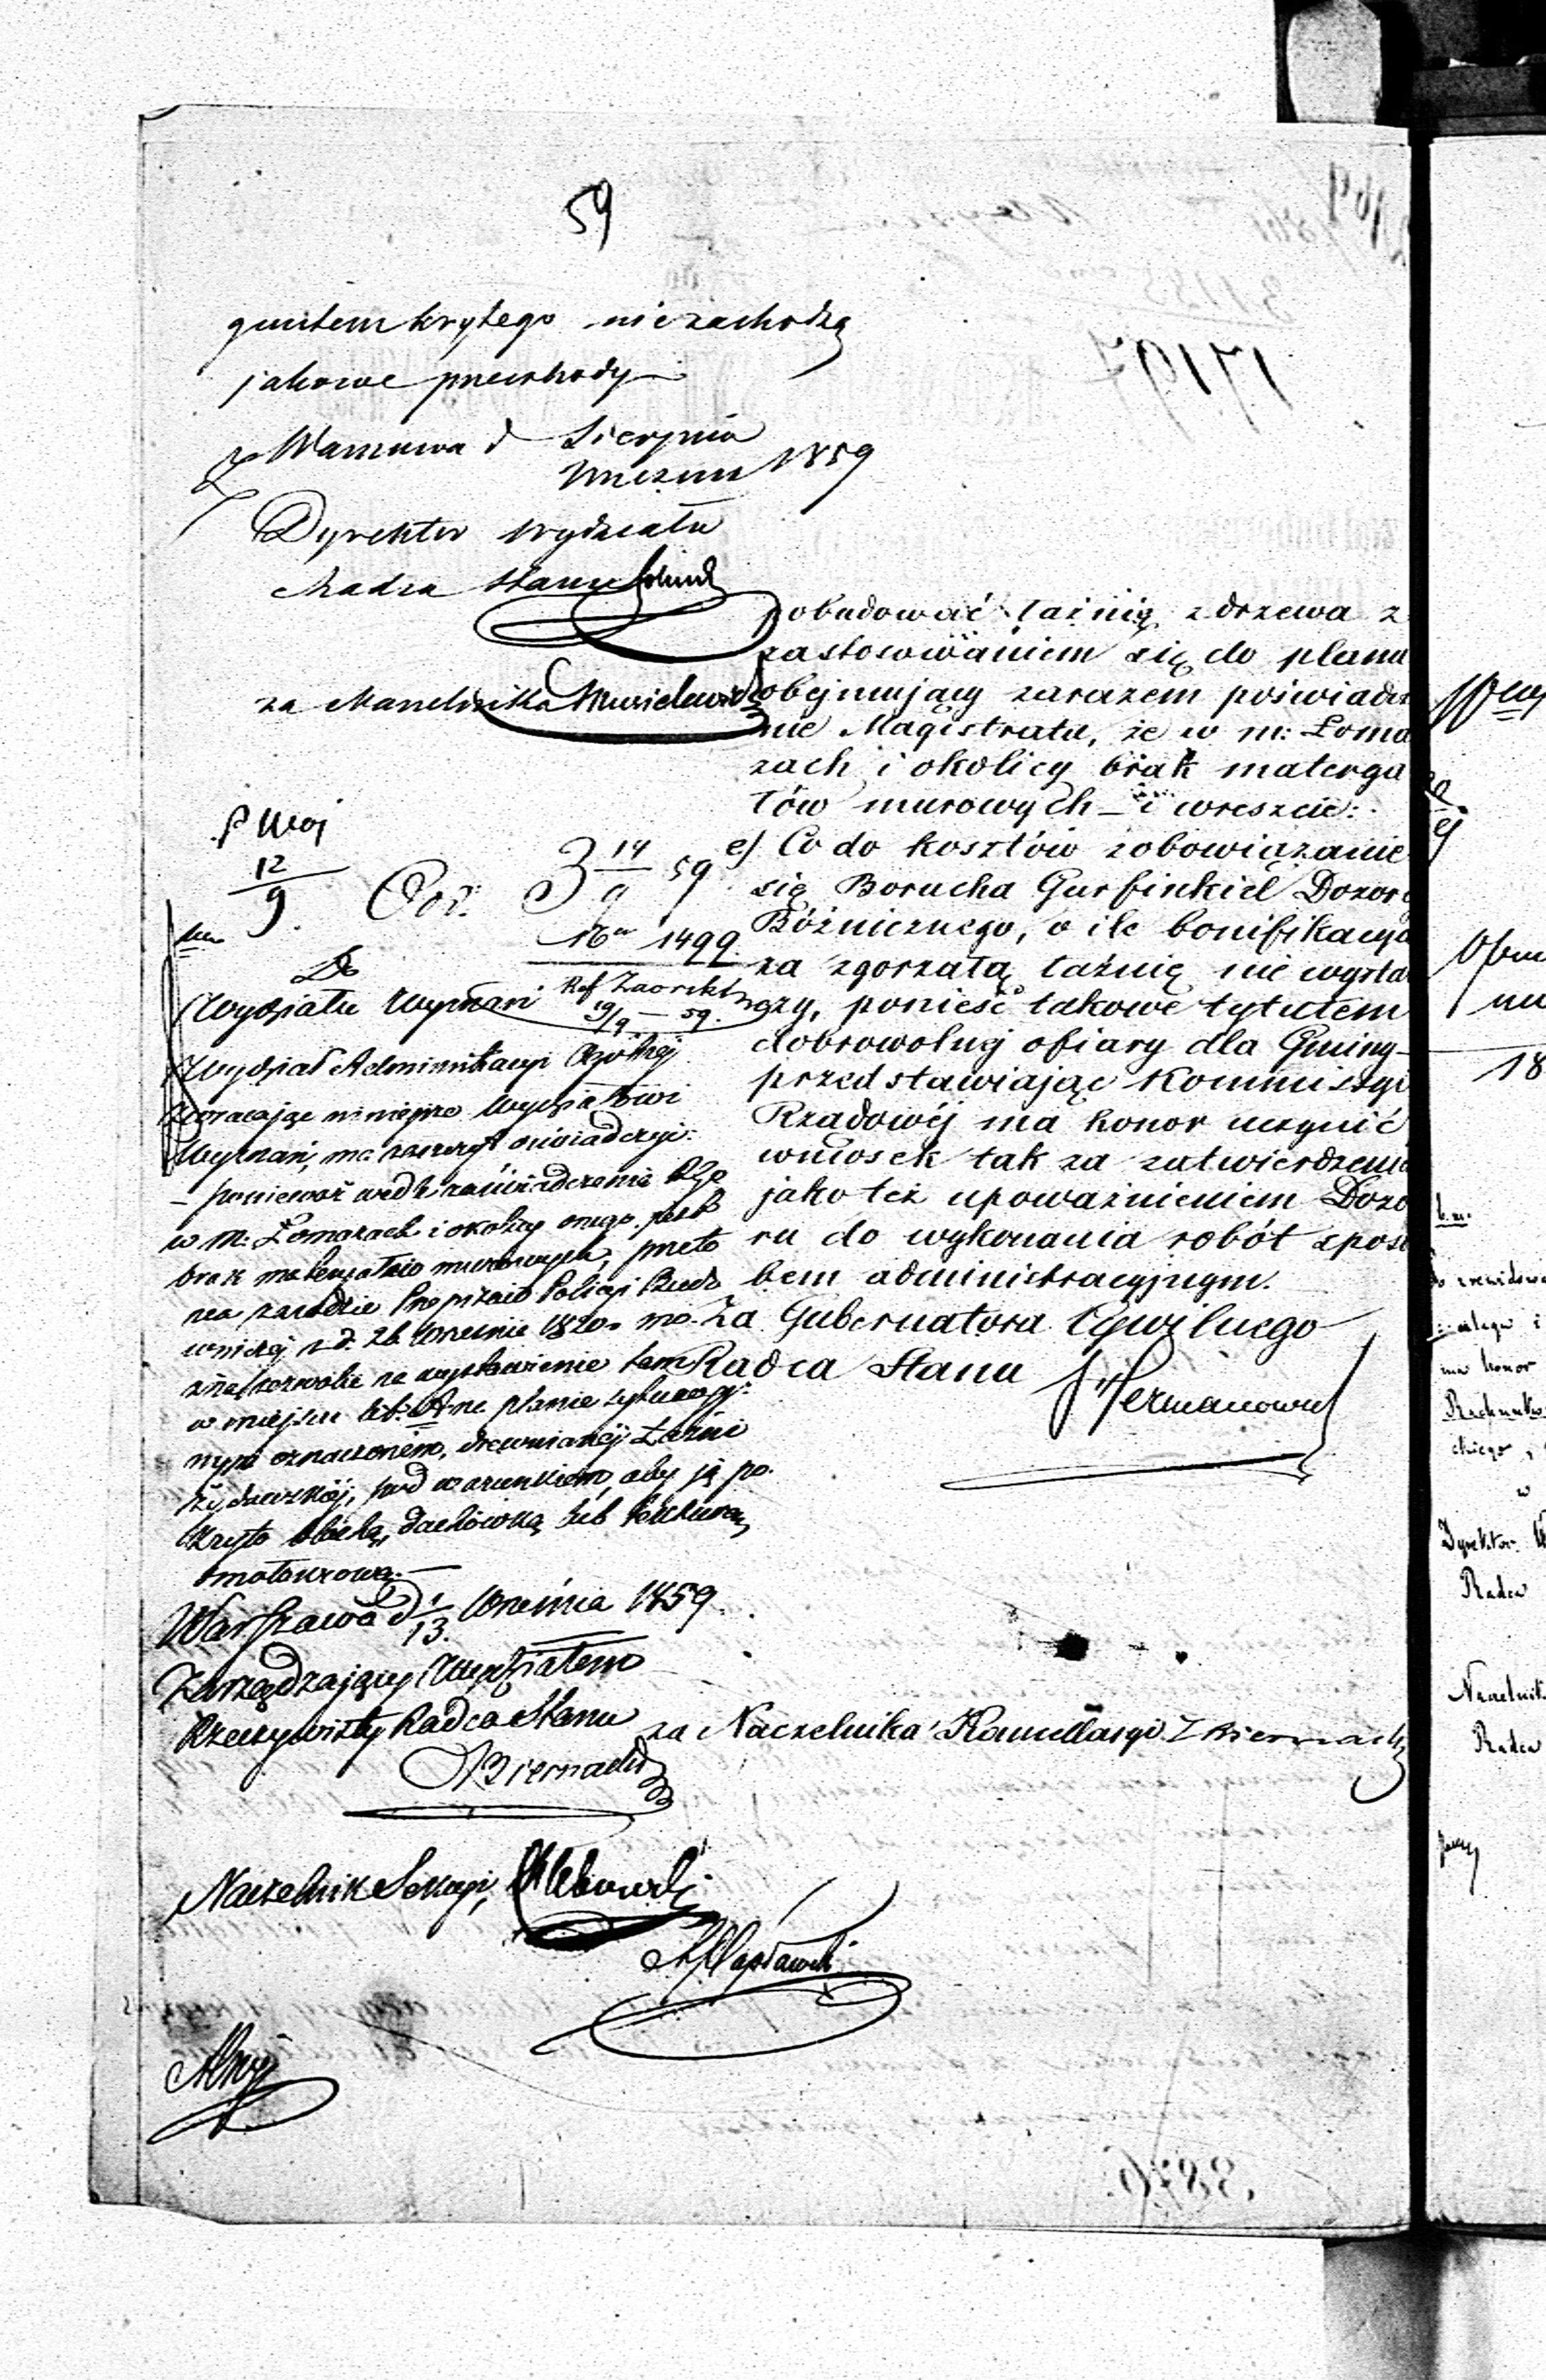 59
gontem krytego nie zachodzą
jakowe przeszkody
Warszawa d Sierpnia
Września 1859
Dyrektor Wydziału
Radca Stanu
za Naczelnika
pobudować łaźnię z drzewa z
zastosowaniem się do planu
obejmujący zarazem poświadcz
nie Magistratu, że w m: Łoma
zach i okolicy brak materya
łów murowych – i wreszcie:
e) Co do kosztów zobowiązanie
się Borucha Gurfinkiel Dozorc
Bóżnicznego, o ile bonifikacya
za zgorzałą łaźnię nie wystar
czy, ponieść takowe tytułem
dobrowolnej ofiary dla Gminy –
przedstawiając Kommissyi
Rządowéj ma honor uczynić
wniosek tak za zatwierdzeniem
jako też upoważnieniem Dozo
ru do wykonania robót sposo
bem administracyjnym.
Za Gubernatora Cywilnego
Radca Stanu
Hermanowski
za Naczelnika Kancellaryi
12
9
14
9 59
1499
Do
Wydziału Wyznań
Ref Zaorski
19/9 – 59.
Wydział Administracyi Ogólnej
zwracając niniejsze Wydziałowi
Wyznań, ma zaszczyt oświadczyć:
– ponieważ wedle zaświadczenia
w m: Łomazach i okolicy onego jest
brak materyałów murowych, przeto
na zasadzie Przepisów Policyi Budo
wniczej z d. 26 Września 1820 mo
żna zezwolić na wystawienie tam
w miejscu lit: A na planie sytuacyj:
nym oznaczonem, drewnianej Łaźni
Żydowskiéj, pod warunkiem, aby ją po
kryto blachą, dachówką lub tekturą
smołowcową. –
Warszawa d 1/13. Września 1859.
Zarządzający Wydziałem
Rzeczywisty Radca Stanu
Biernacki
Naczelnik Sekcyi,